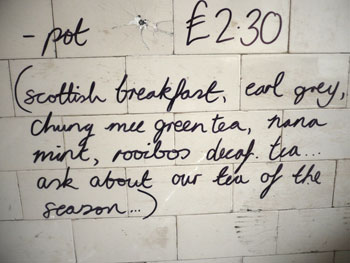 - pot £2.30
(scottish breakfast, earl grey,
chung mee green tea, nana
mint, rooibos decaf. tea...
ask about our tea of the
season...)